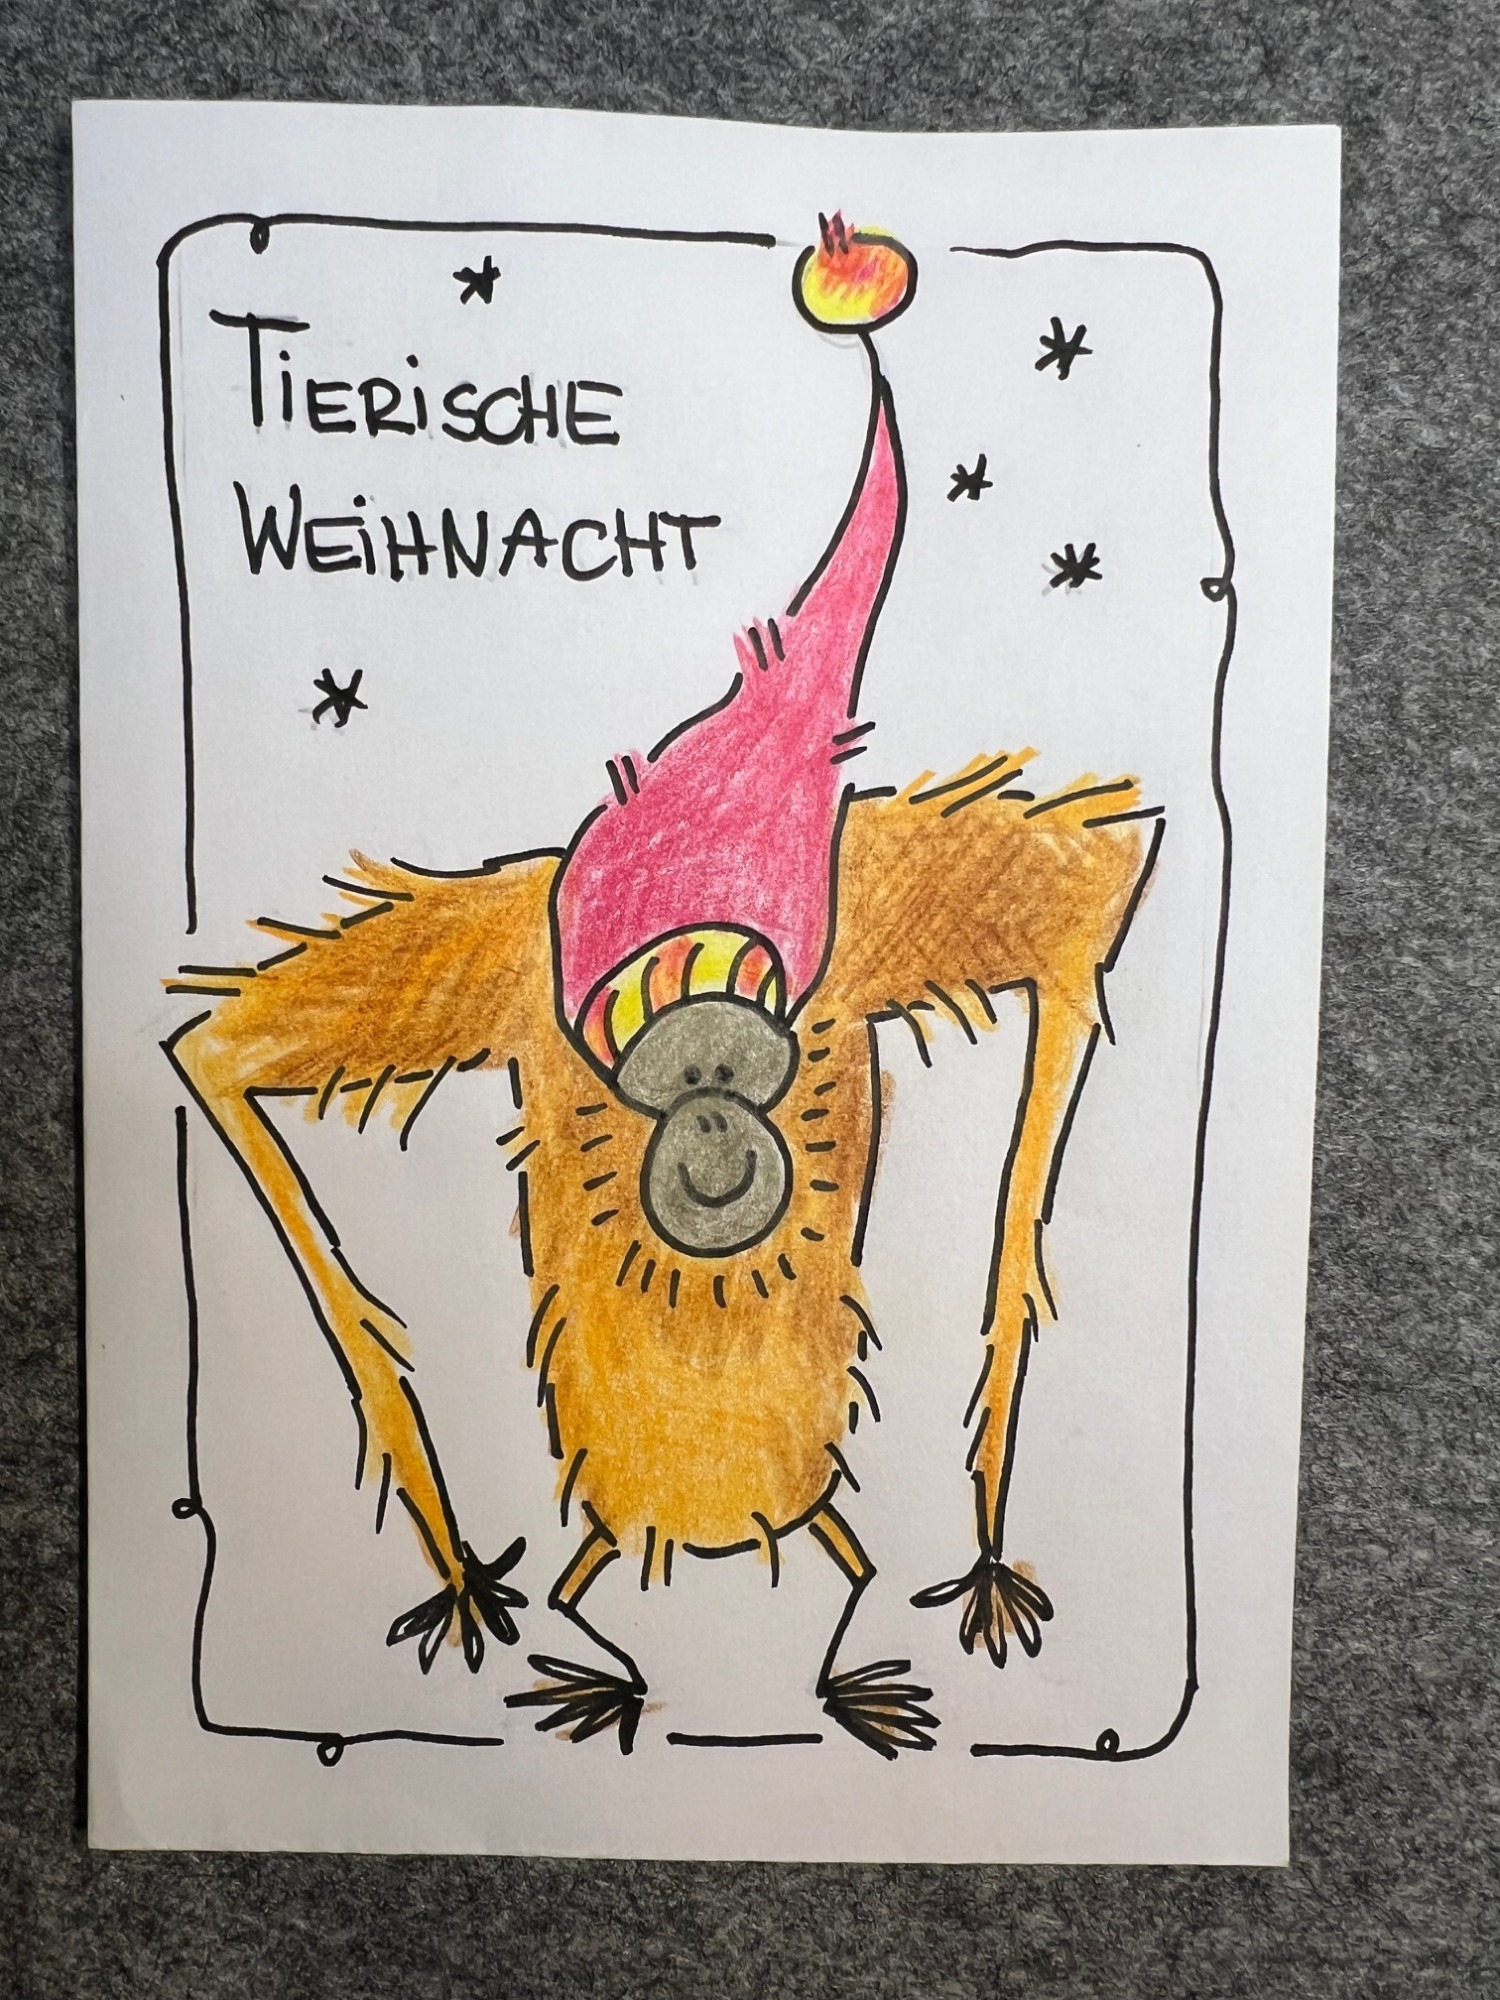 Tierische
Weihnacht